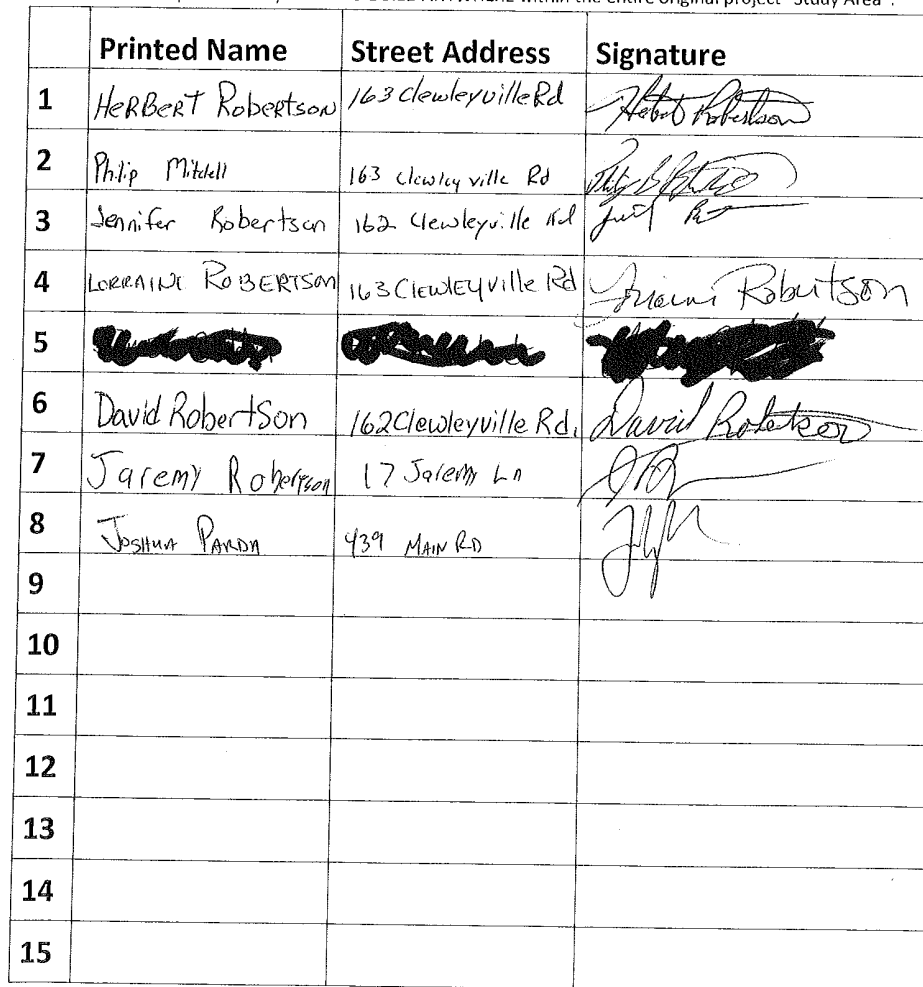 within the entire original project "Study Area".
Printed Name Street Address Signature
1 HeRBeRT Robertson 163 Clewleyville Rd Robertson
2 Philip Mitchell 163 Clewleyville Rd
3 Jennifer Robertson 162 Clewleyville Rd
4 LORRAINE ROBERTSON 163 CLEWLEYville Rd Robertson
5
6 David Robertson 162 Clewleyville Rd. David Robertson
7 Jaremy Robertson 17 Jaremy Ln
8 JOSHUA PARDA 439 MAIN RD
9
10
11
12
13
14
15